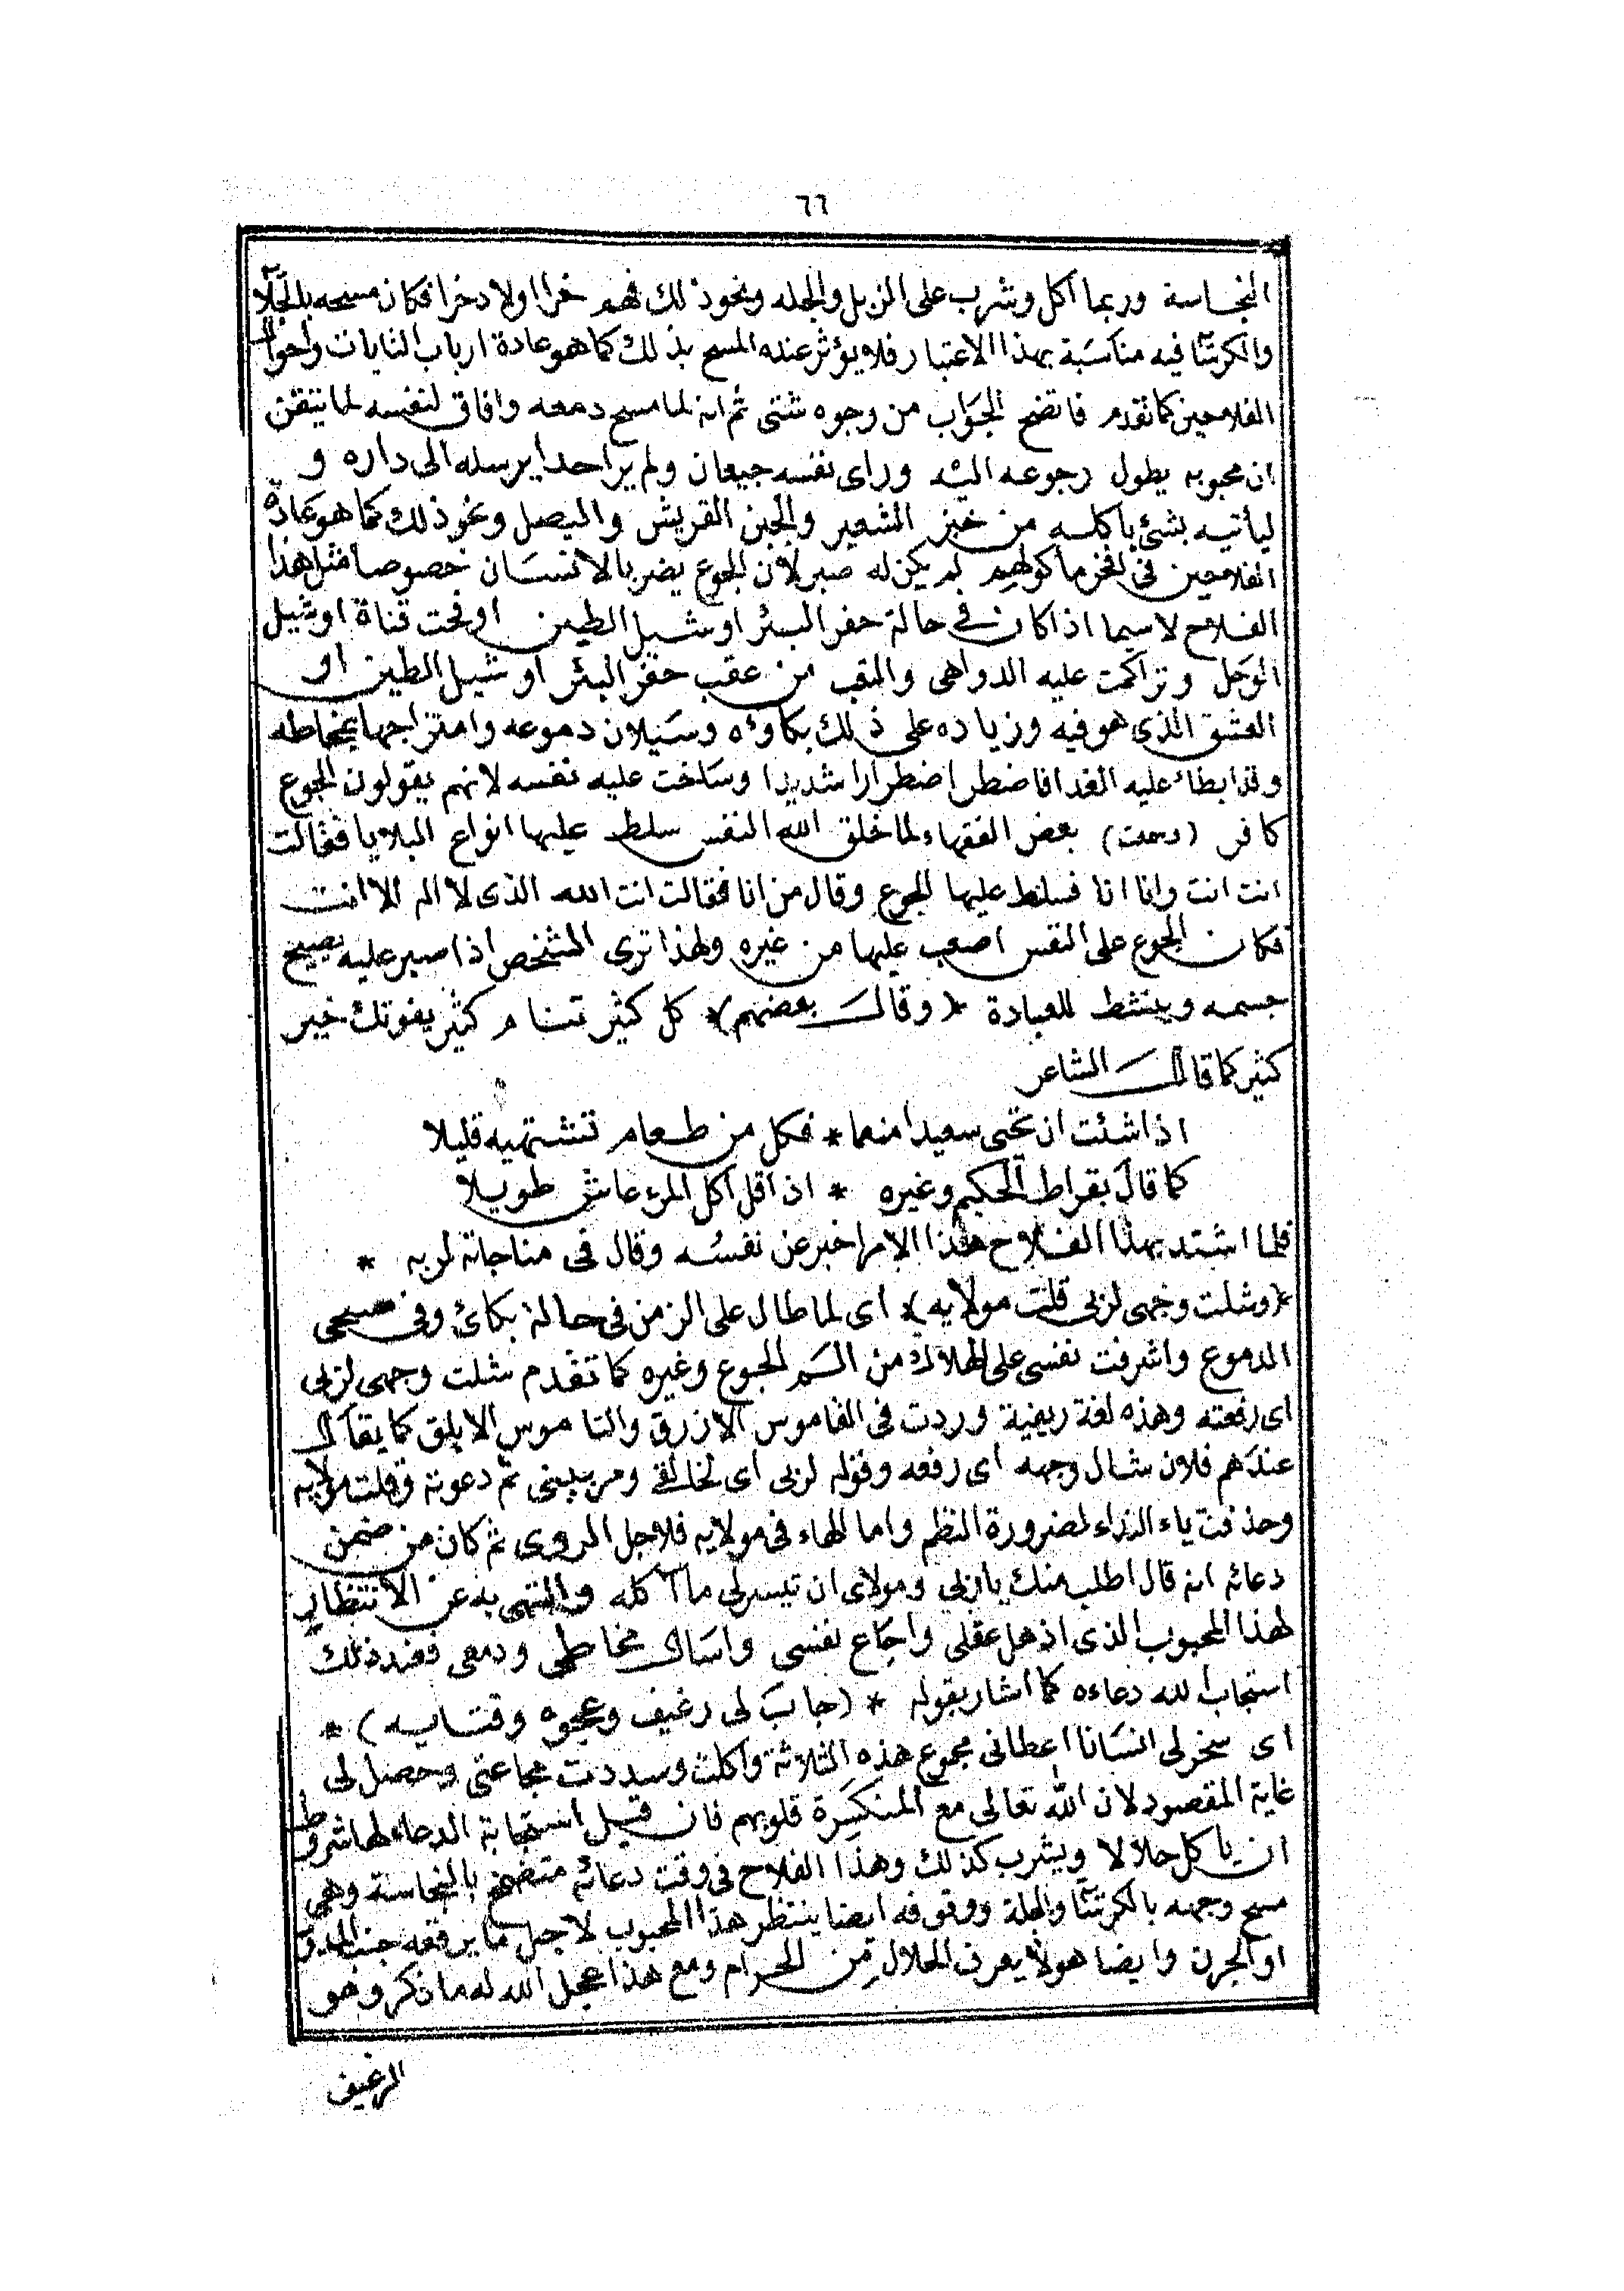 ٦٦
النجاسة وربما أكل وشرب على الزبل والجله ونحو ذلك فهم خرا اولاد خرا فكان مسحه بالجلا
والكرتتا فيه مناسبة بهذا الاعتبار فلا يؤثر عنده المسح بذلك كما هو عادة ارباب النايات واحوال
الفلاحين كما تقدم فاتضح الجواب من وجوه شتى ثم انه لما مسح دمعه وافاق لنفسه لما يتقن
ان محبوبه يطول رجوعه اليه وراى نفسه جيعان ولم ير احدا يرسله الى داره و
ليأتيه بشئ ياكله من خبز الشعير والجبن القريش والبصل ونحو ذلك كما هو عادة
الفلاحين فى افخر ماكولهم لم يكن له صبر لان الجوع يضر بالانسان خصوصا مثل هذا
الفلاح لا سيما اذا كان فى حالة حفر البئر او شيل الطين او فحت قناة او شيل
الوحل وتراكمت عليه الدواهى والتعب من عقب حفر البئر او شيل الطين او
العشق الذى هو فيه وزياده على ذلك بكاؤه وسيلان دموعه وامتزاجها بمخاطه
وقد ابطا عليه الغدا فاضطر اضطرارا شديدا وساخت عليه نفسه لانهم يقولون الجوع
كافر بعض الفقهاء لما خلق الله النفس سلط عليها انواع البلايا فقالت
انت انت وانا انا فسلط عليها الجوع وقال من انا فقالت انت الله الذى لا اله الا انت
فكان الجوع على النفس اصعب عليها من غيره ولهذا ترى الشخص اذا صبر عليه يصح
جسمه وينشط للعبادة * (وقال بعضهم) * كل كثير تنام كثير يفوتك خير
كثير كما قال الشاعر
اذا شئت ان تحى سعيدا منعما * فكل من طعام تشتهيه قليلا
كما قال بقراط الحكيم وغيره * اذا قل اكل المرء عاش طويلا
فلما اشتد بهذا الفلاح هذا الامر اخبر عن نفسه وقال فى مناجاته لربه *
* (وشلت وجهى لربى قلت مولايه) * اى لما طال على الزمن فى حالة بكائ وفى مسحى
الدموع واشرفت نفسى على الهلاك من الم الجوع وغيره كما تقدم شلت وجهى لربى
اى رفعته وهذه لغة ريفية وردت فى القاموس الازرق والناموس الابلق كما يقال
عندهم فلان شال وجهه اى رفعه وقوله لربى اى لخالقى ومربينى ثم دعوته وقلت مولايه
وحذفت ياء النداء لضرورة النظم واما الهاء فى مولايه فلاجل الروى ثم كان من ضمن
دعائه انه قال اطلب منك يا ربى ومولاى ان تيسر لى ما آكله والتهى به عن الانتظار
لهذا المحبوب الذى اذهل عقلى واجاع نفسى واسال مخاطى ودمعى فعند ذلك
استجاب الله دعاءه كما اشار بقوله * (جاب لى رغيف وعجوه وقتايه) *
اى سخر لى انسانا اعطانى مجموع هذه الثلاثة واكلت وسددت مجاعتى وحصل لى
غاية المقصود لان الله تعالى مع المنكسرة قلوبهم فان قيل استجابة الدعاء لها شروط
ان ياكل حلالا ويشرب كذلك وهذا الفلاح فى وقت دعائه متضمخ بالنجاسة وهى
مسح وجهه بالكرتتا والجلة ووقوفه ايضا ينتظر هذا المحبوب لاجل ما يرفقه جنب المدو
او الجرن وايضا هو لا يعرف الحلال من الحرام ومع هذا عجل الله له ما ذكر وهو
الرغيف